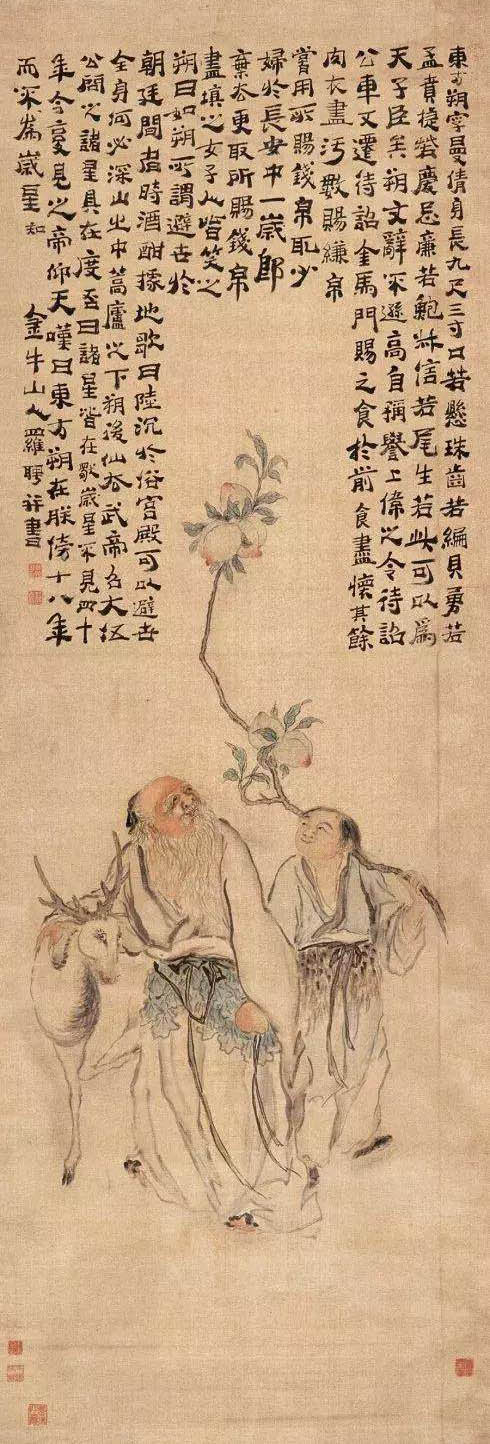 東方朔字曼倩身長九尺三寸口若懸珠齒若編貝勇若
孟賁捷若慶忌廉若鮑叔信若尾生若此可以為
天子臣矣朔文辭不遜高自稱譽上偉之令待詔
公車又遷待詔金馬門賜之食於前食盡懷其餘
肉衣盡污數賜縑帛
嘗用所賜錢帛取少
婦於長安中一歲即
棄去更取所賜錢帛
盡填之女子人皆笑之
朔曰如朔所謂避世於
朝廷間者時酒酣據地歌曰陸沉於俗宮殿可以避世
全身何必深山之中蒿廬之下朔後仙去武帝召大伍
公問之諸星具在度否曰諸星皆在歲星不見四十
年今復見之帝仰天嘆曰東方朔在朕傍十八年
而不為歲星知
金牛山人羅聘并書